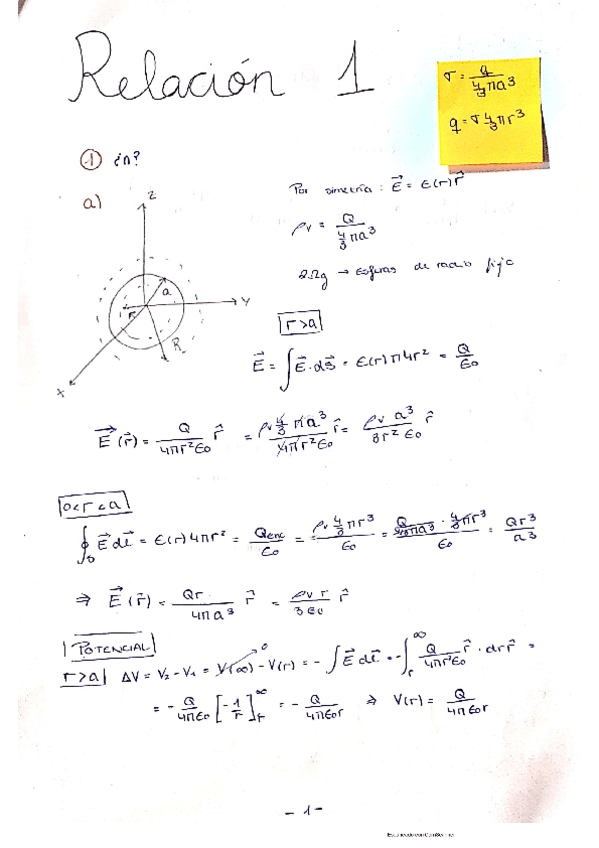 Relación 1
σ = q / (4/3 πa³)
q = σ 4/3 πr³
① ¿n?
a)
z
a
r
R
y
x
Por simetría : E⃗ = E(r) r̂
ρv = Q / (4/3 πa³)
→ Esferas de radio fijo
r>a
E⃗ = ∫ E⃗·ds⃗ = E(r) π4r² = Q/ε₀
E⃗(r⃗) = Q/(4πr²ε₀) r̂ = ρv 4/3 πa³/(4πr²ε₀) r̂ = ρv a³/(3r²ε₀) r̂
0<r<a
∮s E⃗ dl⃗ = E(r) 4πr² = Qenc/ε₀ = ρv 4/3 πr³/ε₀ = Q/(4/3πa³) · 4/3πr³/ε₀ = Qr³/a³
⇒ E⃗(r) = Qr/(4πa³) r̂ = ρv r/(3ε₀) r̂
POTENCIAL
r>a ΔV = V₂ - V₁ = V(∞) - V(r) = - ∫ E⃗ dl⃗ = - ∫r^∞ Q/(4πr²ε₀) r̂ · dr r̂ =
0
= - Q/(4πε₀) [-1/r]r^∞ = - Q/(4πε₀r) ⇒ V(r) = Q/(4πε₀r)
- 1 -
Escaneado con CamScanner